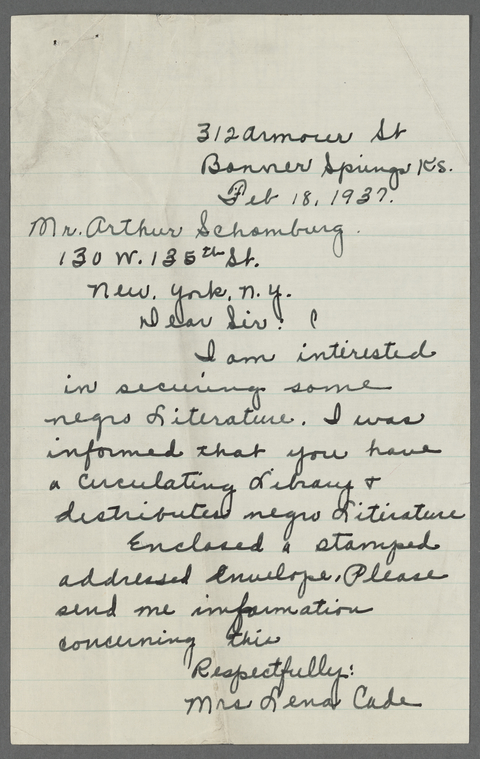 312 Armour St
Bonner Springs Ks.
Feb 18, 1937.
Mr. Arthur Schomburg.
130 W. 135th St.
New, York, N.Y.
Dear Sir: (
I am interested
in securing some
negro Literature. I was
informed that you have
a Circulating Library &
distributes negro Literature
Enclosed a stamped
addressed Envelope. Please
send me imformation
concerning this
Respectfully:
Mrs Lena Cade